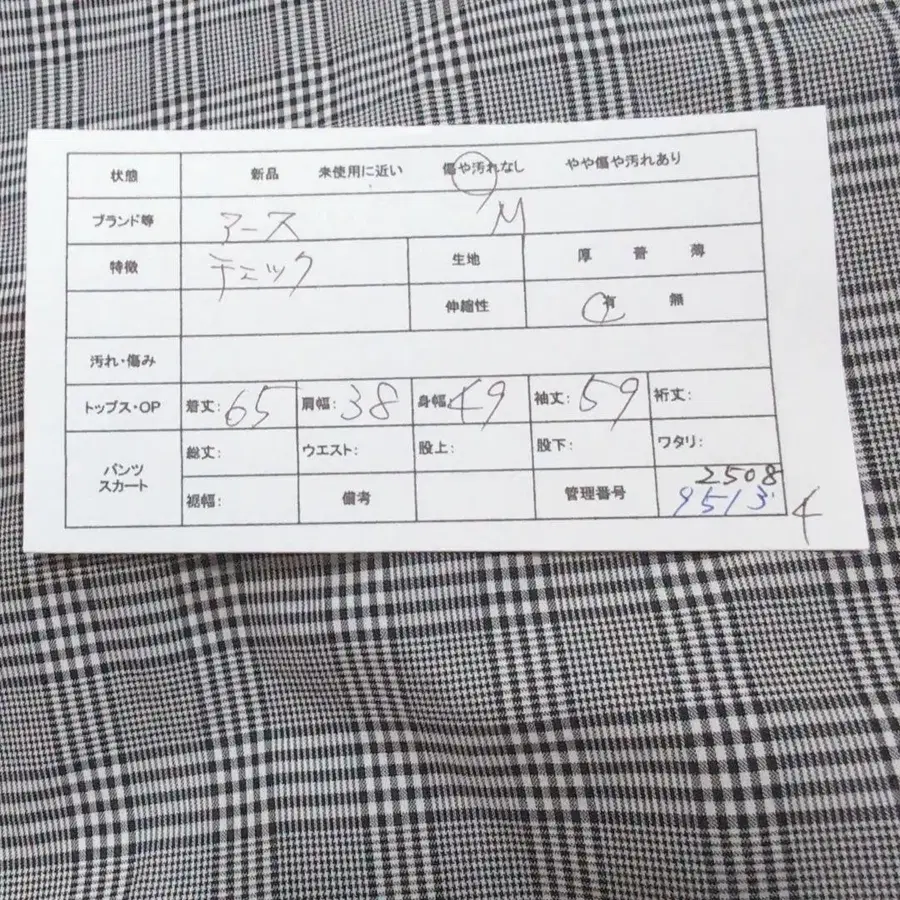 状態 新品 未使用に近い 傷や汚れなし やや傷や汚れあり
ブランド等 アース M
特徴 チェック 生地 厚 普 薄
伸縮性 有 無
汚れ・傷み
トップス・OP 着丈: 65 肩幅: 38 身幅: 49 袖丈: 59 裄丈:
パンツ スカート 総丈: ウエスト: 股上: 股下: ワタリ:
裾幅: 備考 管理番号 2508
9513 4